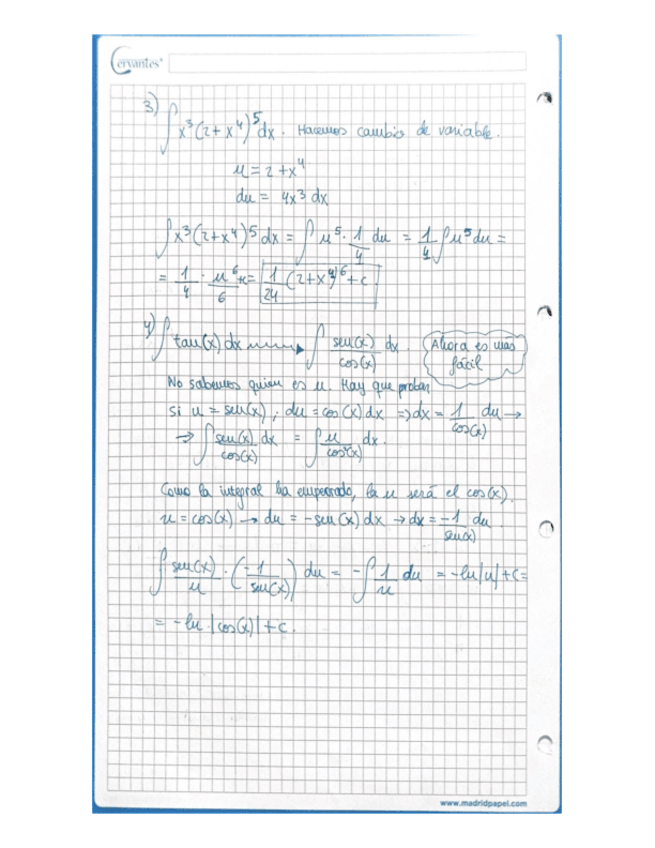 Cervantes®
3) ∫x³(2+x⁴)⁵dx. Hacemos cambio de variable.
u = 2+x⁴
du = 4x³ dx
∫x³(2+x⁴)⁵ dx = ∫u⁵ · 1/4 du = 1/4 ∫u⁵ du =
= 1/4 · u⁶/6 + c = 1/24 (2+x⁴)⁶ + c
4) ∫tan(x) dx → ∫ sen(x)/cos(x) dx. Ahora es más fácil
No sabemos quien es u. Hay que probar
si u = sen(x); du = cos(x) dx ⇒ dx = 1/cos(x) du →
→ ∫ sen(x)/cos(x) dx = ∫ u/cos²(x) dx.
Como la integral ha empeorado, la u será el cos(x).
u = cos(x) → du = -sen(x) dx → dx = -1/sen(x) du
∫ sen(x)/u · (-1/sen(x)) du = -∫ 1/u du = -ln|u| + c =
= -ln |cos(x)| + c.
www.madridpapel.com